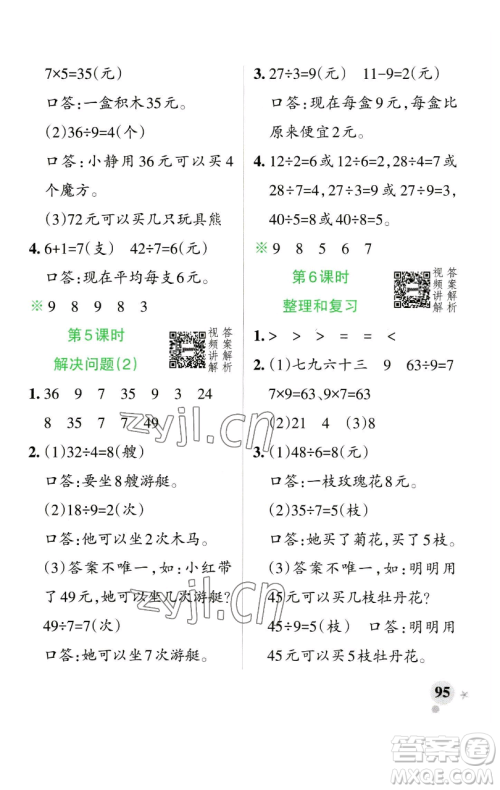 7×5=35(元)
口答:一盒积木35元。
(2)36÷9=4(个)
口答:小静用36元可以买4
个魔方。
(3)72元可以买几只玩具熊
4. 6+1=7(支) 42÷7=6(元)
口答:现在平均每支6元。
※ 9 8 9 8 3
第5课时
解决问题(2)
视频讲解
答案解析
1. 36 9 7 35 9 3 24
8 4 7 7 7 49
2. (1)32÷4=8(艘)
口答:要坐8艘游艇。
(2)18÷9=2(次)
口答:他可以坐2次木马。
(3)答案不唯一,如:小红带
了49元,她可以坐几次游艇?
49÷7=7(次)
口答:她可以坐7次游艇。
3. 27÷3=9(元) 11-9=2(元)
口答:现在每盒9元,每盒比
原来便宜2元。
4. 12÷2=6或12÷6=2,28÷4=7或
28÷7=4,27÷3=9或27÷9=3,
40÷5=8或40÷8=5
※ 9 8 5 6 7
第6课时
整理和复习
视频讲解
答案解析
1. > > > = = <
2. (1)七九六十三 9 63÷9=7
7×9=63、9×7=63
(2)21 4 (3)8
3. (1)48÷6=8(元)
口答:一枝玫瑰花8元。
(2)35÷7=5(枝)
口答:她买了菊花,买了5枝。
(3)答案不唯一,如:明明用
45元可以买几枝牡丹花?
45÷9=5(枝) 口答:明明用
45元可以买5枝牡丹花。
95
zyjl.cn
zyjl.cn
答案圈
MXQE.COM